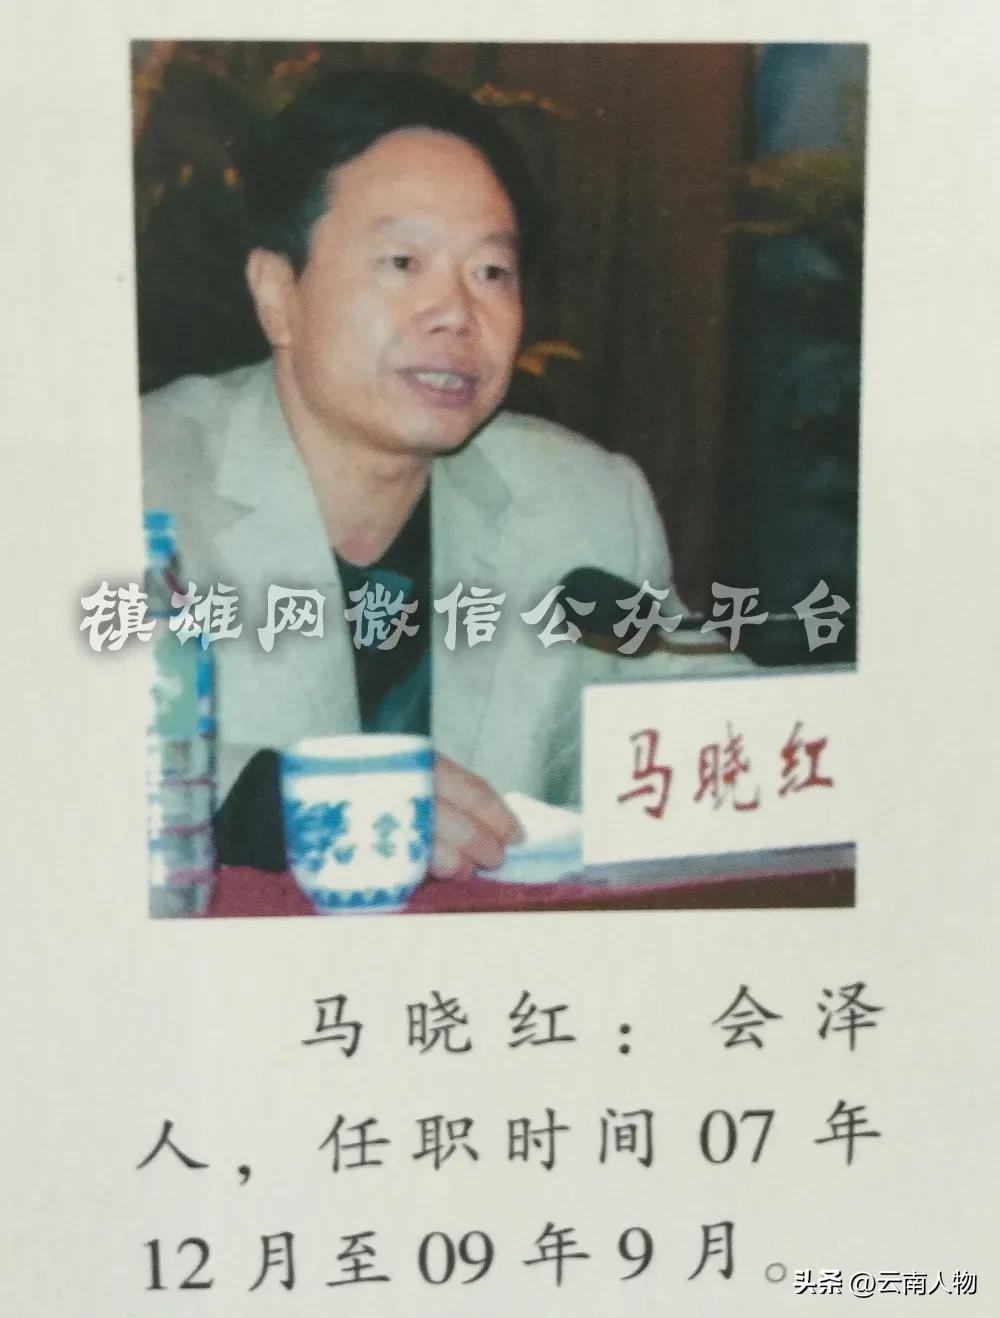 镇雄网微信公众平台
马晓红
马晓红：会泽
人，任职时间07年
12月至09年9月。
头条 @云南人物